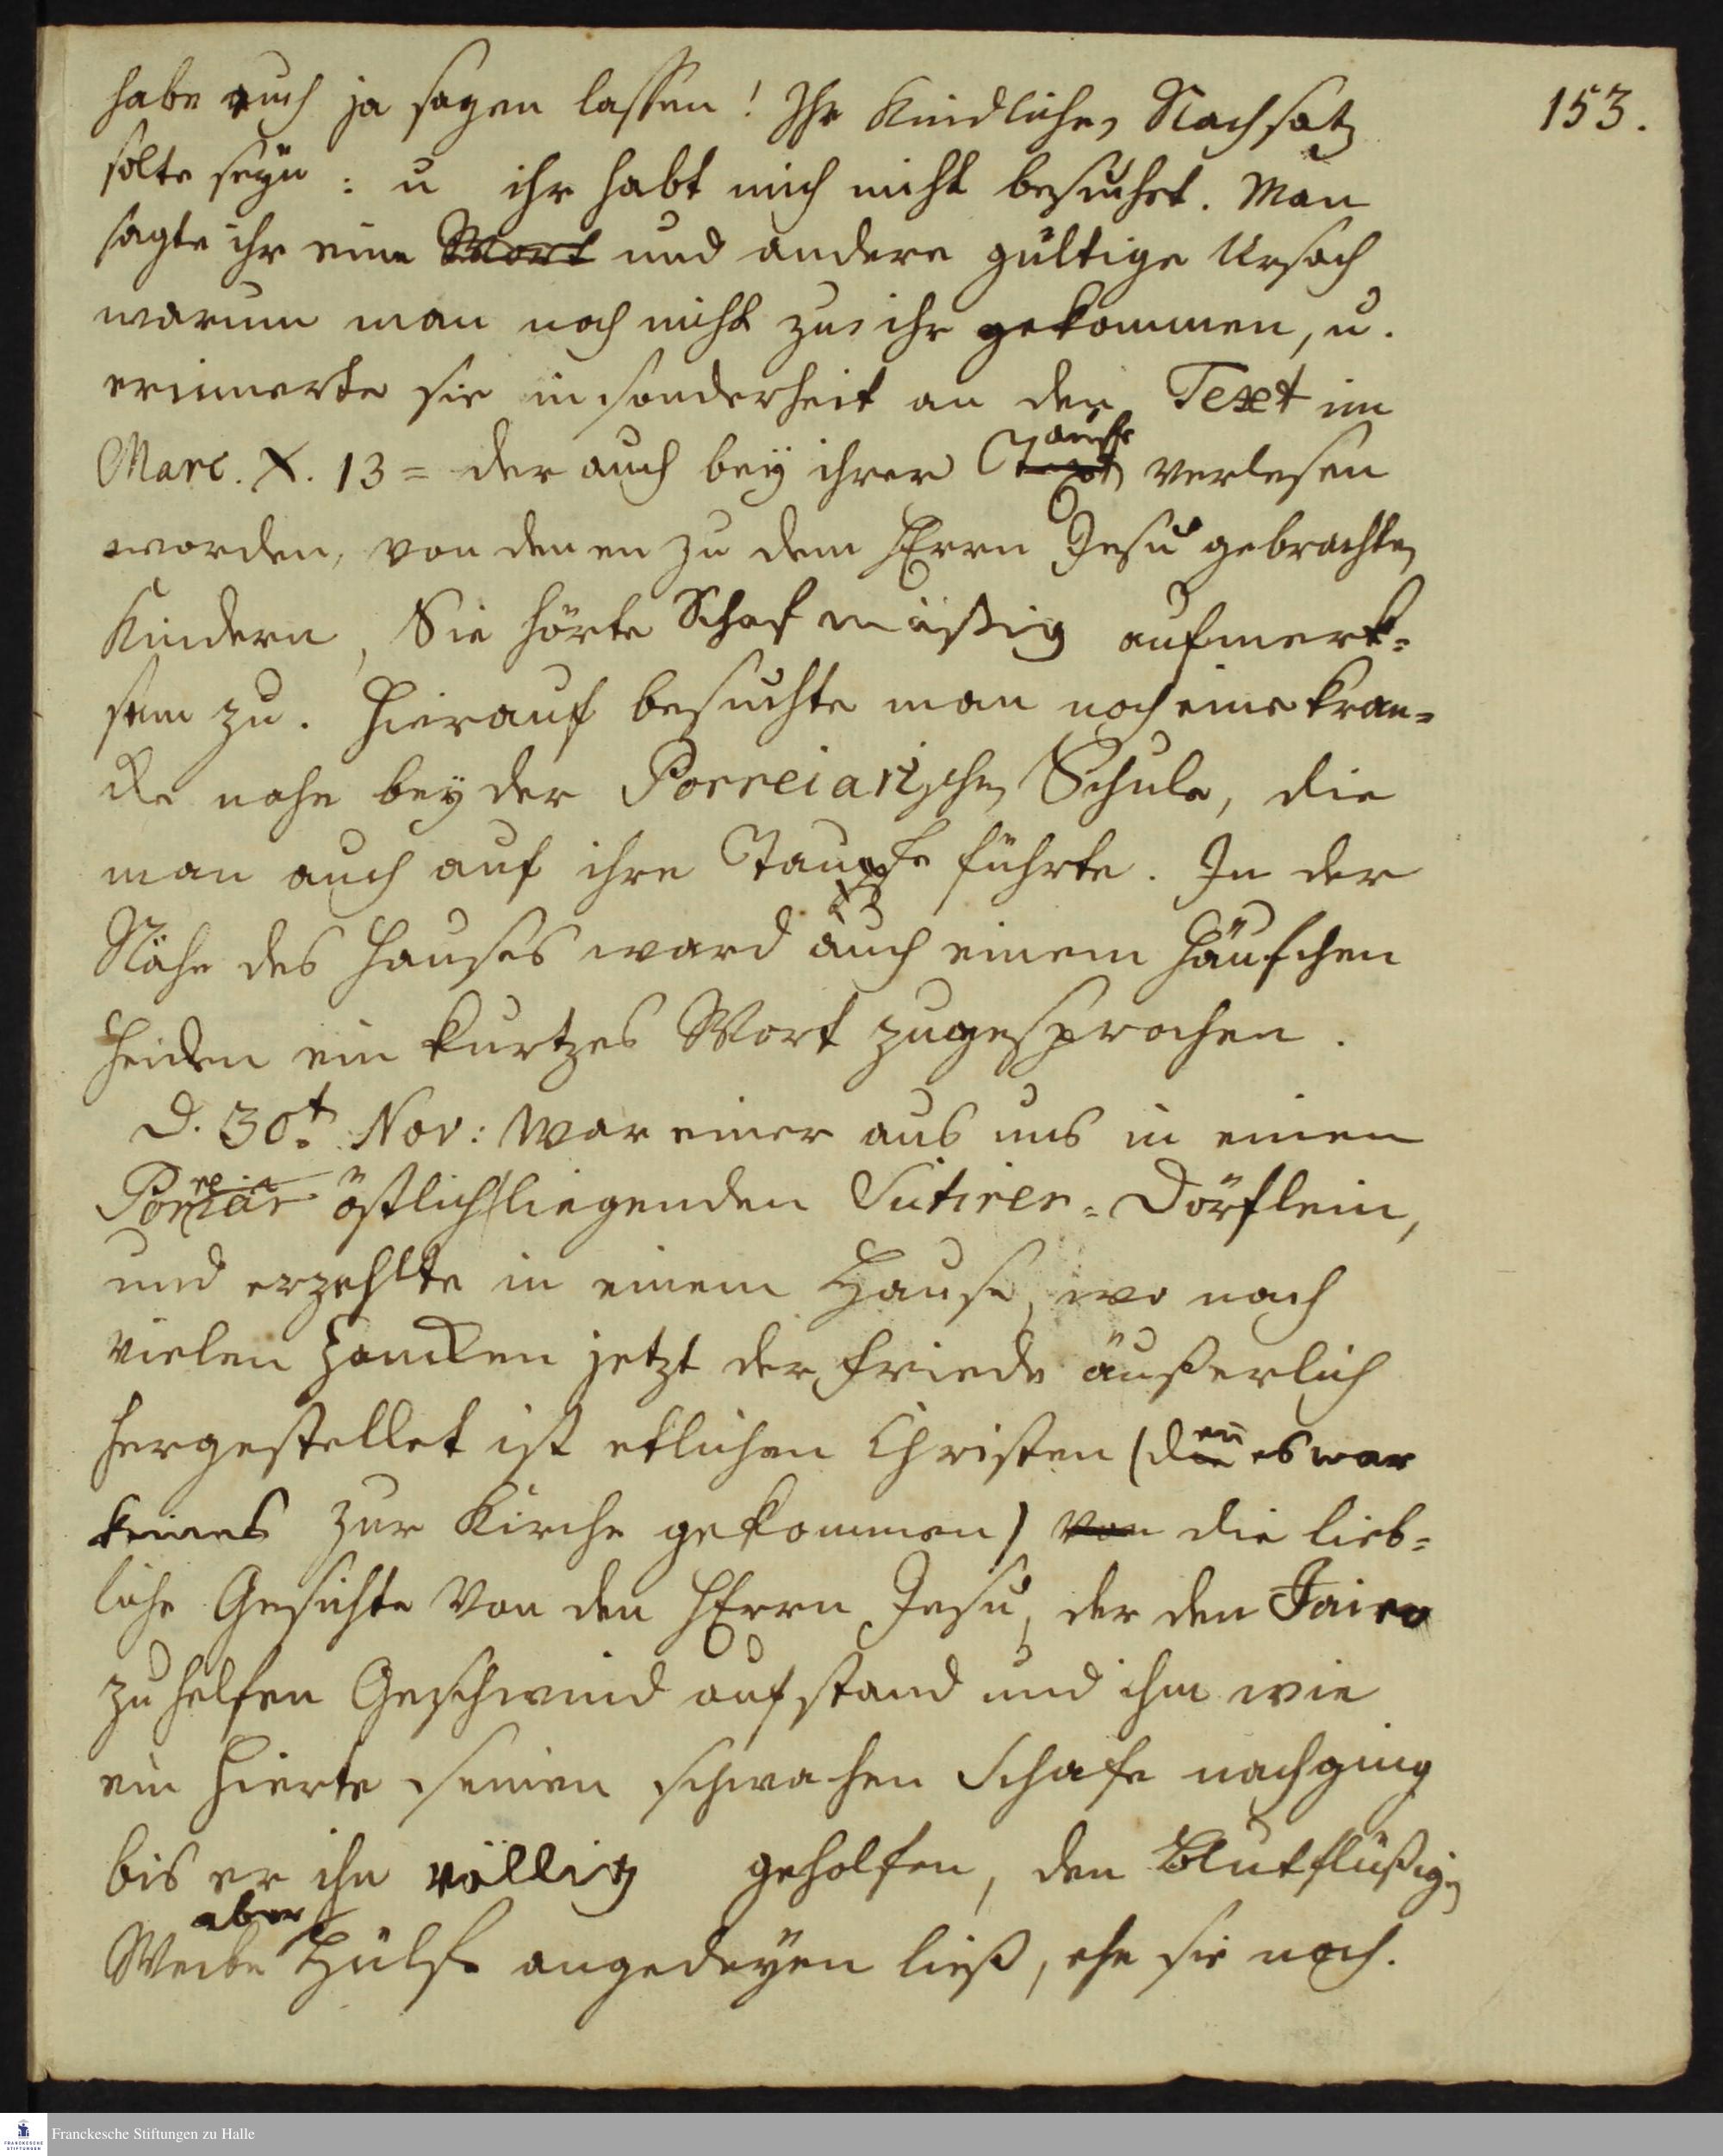 153.
habe euch ja sagen lassen! Ihr Kindlicher Nachsatz
solte seyn: u ihr habt mich nicht besuchet. Man
sagte ihr eine Wort und andere gültige Ursach
warum man noch nicht zu ihr gekommen, u.
erinnerte sie insonderheit an den Text im
Marc. X. 13 = der auch bey ihrer Taufe verlesen
worden, von denen zu dem HErrn Jesu gebrachten
Kindern, Sie hörte Schafmäßig aufmerk=
sam zu. Hierauf besuchte man noch eine kran=
cke nahe bey der Porreiarischen Schule, die
man auch auf ihre Taufe führte. In der
Nähe des Hauses ward auch einem Häufchen
Heiden ein kurtzes Wort zugesprochen.
D. 30t. Nov: war einer aus uns in einen
Porreiar östlich liegenden Sutirer=Dörflein,
und erzehlte in einem Hause, wo nach
vielen Zancken jetzt der Friede äußerlich
hergestellet ist etlichen Christen (denn es war
keines zur Kirche gekommen) von die lieb=
liche Gesichte von den HErrn Jesu, der den Jairo
zu helfen Geschwind aufstand und ihm wie
ein Hierte seinen schwachen Schafe nachging
bis er ihn völlig geholfen, den Blutflüßigen
Weibe aber Hülfe angedeyen ließ, ehe sie noch.
Franckesche Stiftungen zu Halle